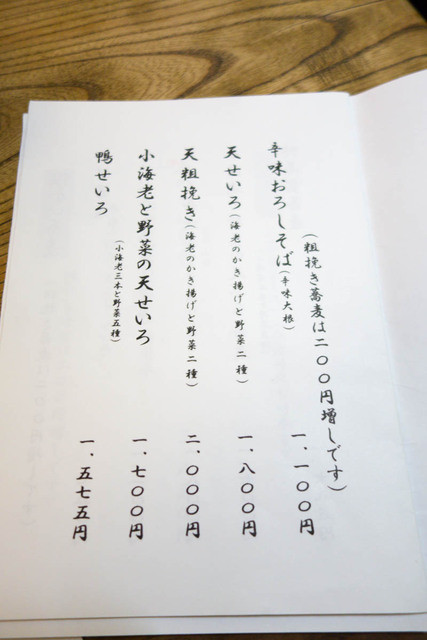 （粗挽き蕎麦は二〇〇円増しです）
辛味おろしそば（辛味大根） 一、一〇〇円
天せいろ（海老のかき揚げと野菜二種） 一、八〇〇円
天粗挽き（海老のかき揚げと野菜二種） 二、〇〇〇円
小海老と野菜の天せいろ 一、七〇〇円
（小海老三本と野菜五種）
鴨せいろ 一、五七五円